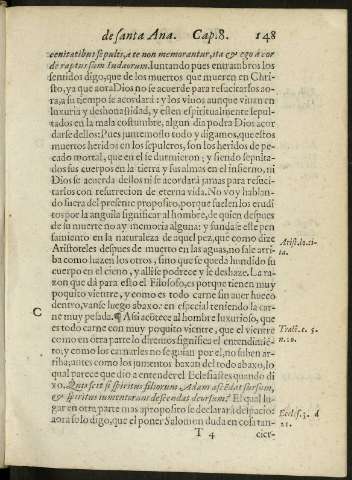 de santa Ana. Cap. 8. 148
cenitatibus sepultis, a te non memorantur, ita & ego à cor
de raptus sum Iudæorum. Iuntando pues entrambros los
sentidos digo, que de los muertos que mueren en Chris-
to, ya que aora Dios no se acuerde para resucitarlos ao-
ra, a su tiempo se acordarà: y los viuos aunque viuan en
luxuria y deshonestidad, y esten espiritualmente sepul-
tados en la mala costumbre, algun dia podra Dios acor
darse dellos: Pues juntemoslo todo y digamos, que estos
muertos heridos en los sepulcros, son los heridos de pe-
cado mortal, que en el se durmieron; y siendo sepulta-
dos sus cuerpos en la tierra y sus almas en el infierno, ni
Dios se acuerda dellos ni se acordarà jamas para resuci-
tarlos con resurrecion de eterna vida. No voy hablan-
do fuera del presente proposito, porque suelen los erudi
tos por la anguila significar al hombre, de quien despues
de su muerte no ay memoria alguna: y fundase este pen
samiento en la naturaleza de aquel pez, que como dize
Aristoteles despues de muerto en las aguas, no sale arri-
ba como hazen los otros, sino que se queda hundido su
cuerpo en el cieno, y alli se podrece y se deshaze. La ra-
zon que dà para esto el Filosofo, es porque tienen muy
poquito vientre, y como es todo carne sin auer hueco
dentro, vanse luego abaxo: en especial teniendo la car-
ne muy pesada. ¶ Assi acòtece al hombre luxurioso, que
es todo carne con muy poquito vientre, que el vientre
como en otra parte lo diremos significa el entendimiē-
to, y como los carnales no se guian por el, no suben ar-
riba, antes como los jumentos baxan del todo abaxo, lo
qual parece que dio a entender el Eclesiastes quando di
xo. Quis scit si spiritus filiorum Adam ascēdat sursum,
& spiritus iumentorum descendat deorsum? El qual lu-
gar en otra parte mas aproposito se declararà despacio:
aora solo digo, que el poner Salomon duda en cosa tan-
T 4 cier-
C
Arist. de.
ta.
Tract. 1. 5.
n. 10.
Eccles. 3. d
21.